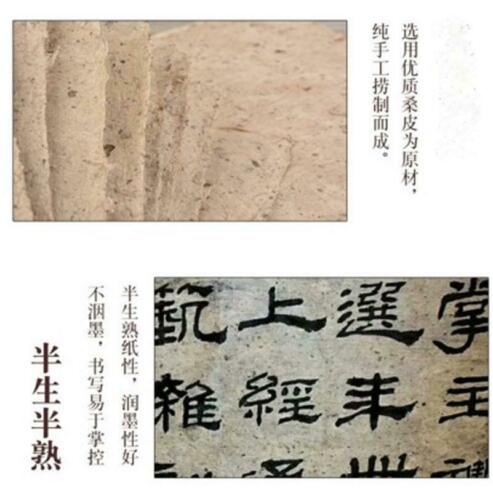 选用优质桑皮为原材，
纯手工捞制而成。
半生熟纸性，润墨性好
不洇墨，书写易于掌控
半生半熟
掌主
選未世
上經通
蓻雜